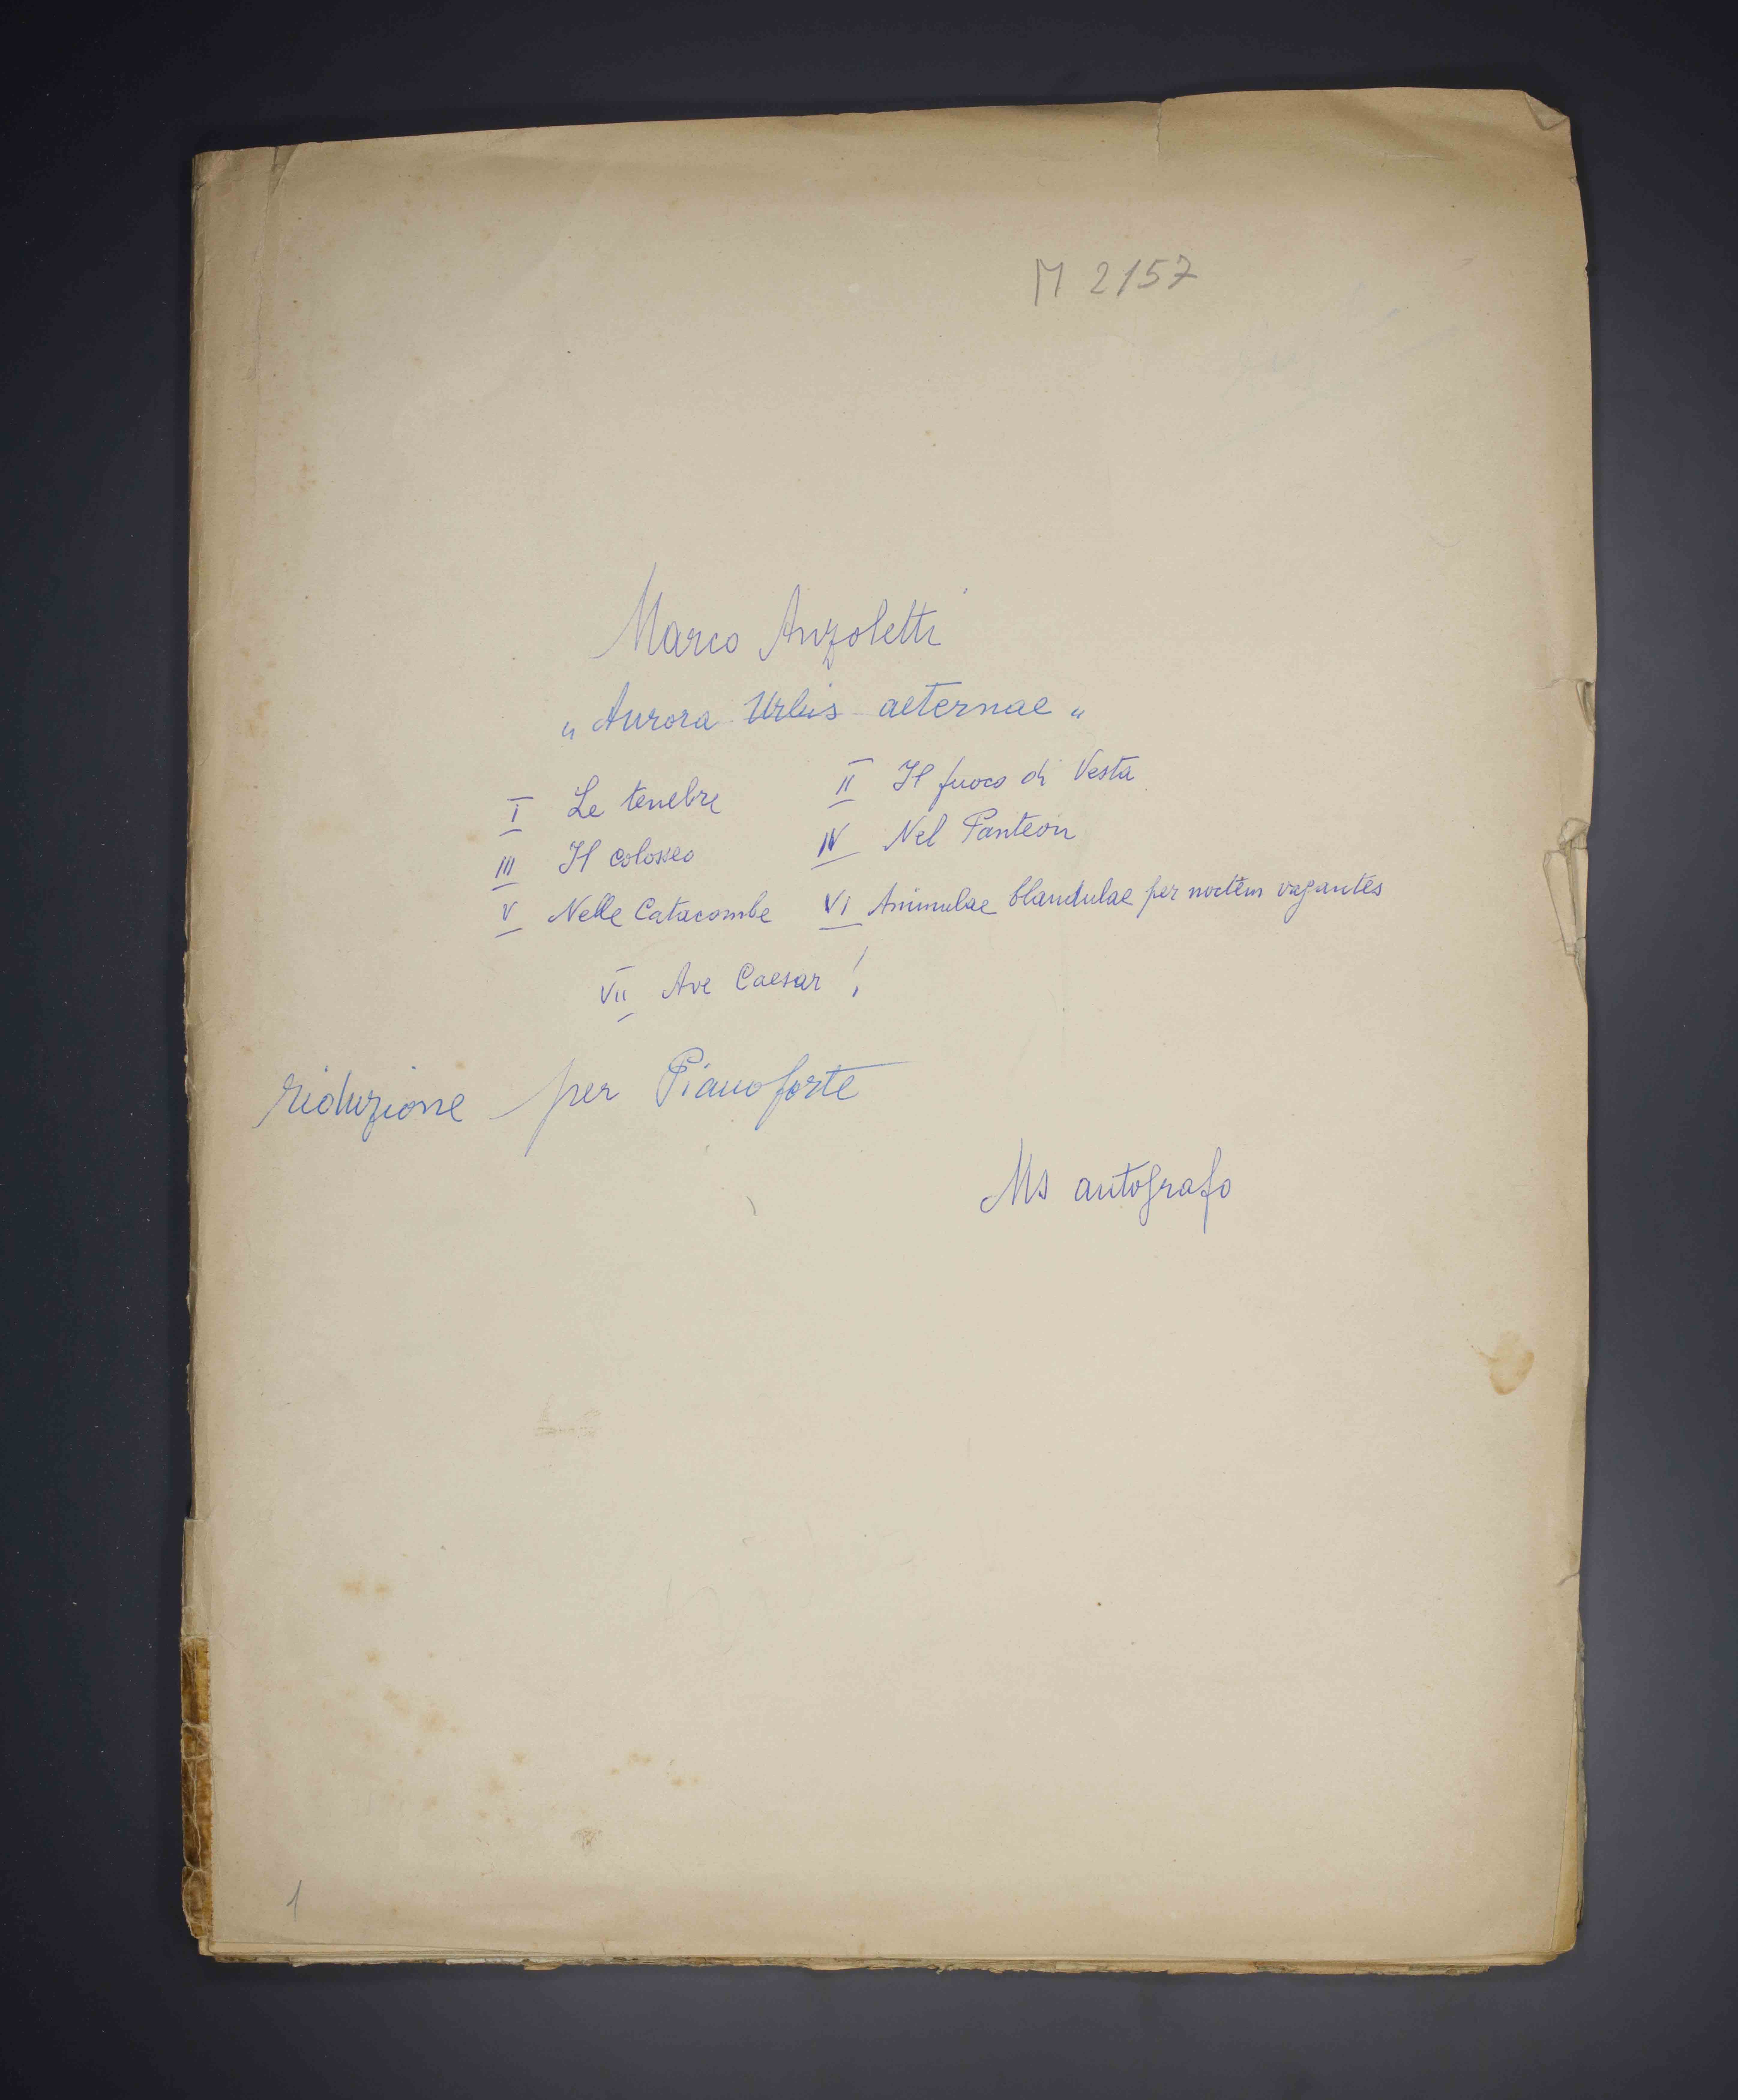 M 2157
Marco Anzoletti
„ Aurora Urbis aeternae „
I Le tenebre II Il fuoco di Vesta
III Il Colosseo IV Nel Panteon
V Nelle Catacombe VI Animulae blandulae per noctem vagantes
VII Ave Caesar !
riduzione per Pianoforte
Ms autografo
1